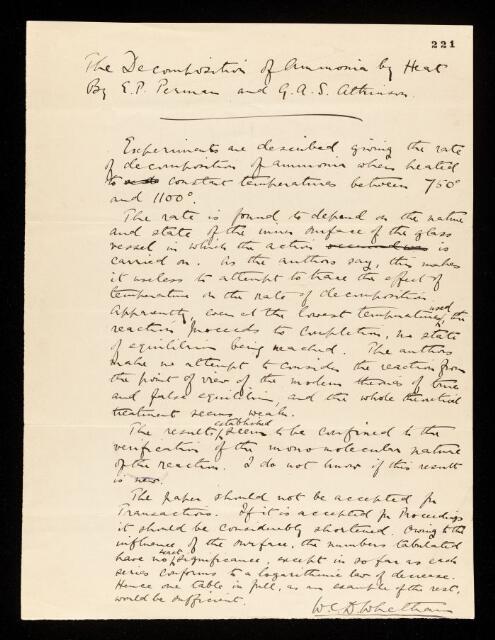 221
The Decomposition of Ammonia by Heat
By E.P. Perman and G.A.S. Atkinson.
Experiments are described giving the rate
of decomposition of ammonia when heated
to constant temperatures between 750°
and 1100°.
The rate is found to depend on the nature
and state of the inner surface of the glass
vessel in which the action is
carried on. As the authors say, this makes
it useless to attempt to trace the effect of
temperature on the rate of decomposition.
Apparently, even at the lowest temperature used, the
reaction proceeds to completion, no state
of equilibrium being reached. The authors
make no attempt to consider the reaction from
the point of view of the modern theories of true
and false equilibrium, and the whole theoretical
treatment seems weak.
The results established seem to be confined to the
verification of the mono molecular nature
of the reaction. I do not know if this result
is new.
The paper should not be accepted for
Transactions. If it is accepted for Proceedings
it should be considerably shortened. Owing to the
influence of the surface, the numbers tabulated
have no exact significance, except in so far as each
series conforms to a logarithmic law of decrease.
Hence one table in full, as an example of the rest,
would be sufficient.
W.C.D. Whetham